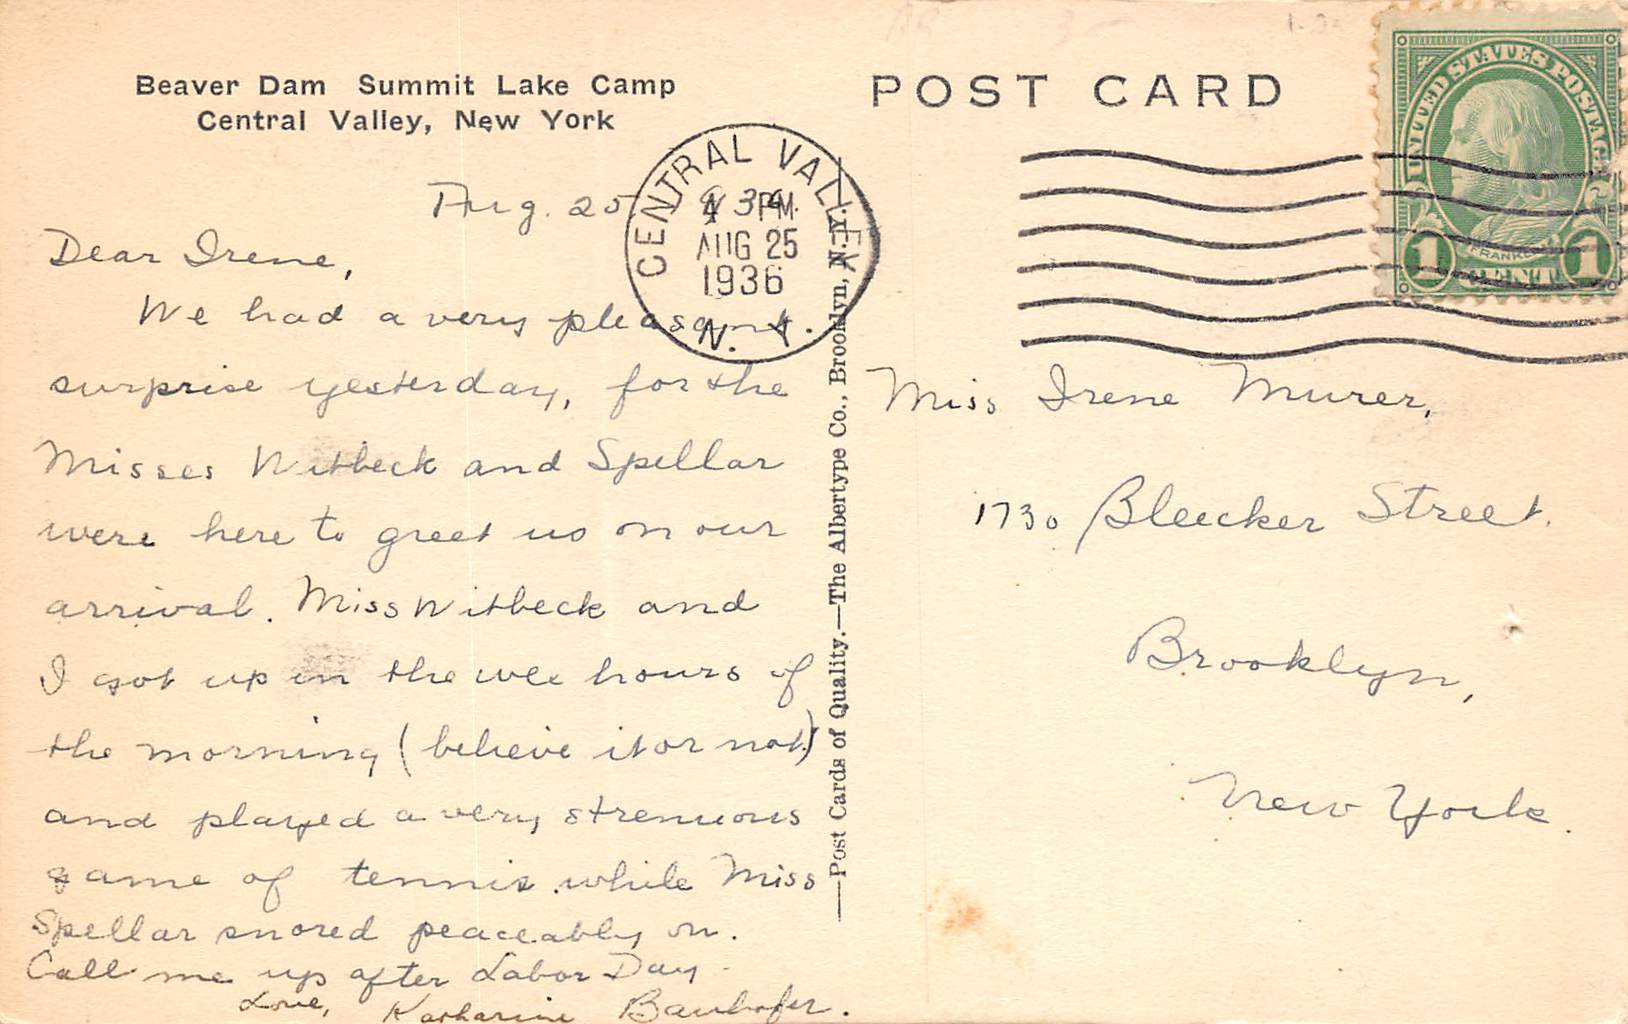 Beaver Dam Summit Lake Camp
Central Valley, New York
POST CARD
UNITED STATES POSTAGE
FRANKLIN
1 CENT 1
CENTRAL VALLEY
4 PM
AUG 25
1936
N. Y.
Aug. 25
Dear Irene,
We had a very pleasant
surprise yesterday, for the
Misses Witbeck and Spellar
were here to greet us on our
arrival. Miss Witbeck and
I got up in the wee hours of
the morning (believe it or not)
and played a very strenuous
game of tennis while Miss
Spellar snored peaceably on.
Call me up after Labor Day.
Love, Katharine Bauhofer.
—Post Cards of Quality.—The Albertype Co., Brooklyn, N.Y.
Miss Irene Murer,
1730 Bleecker Street.
Brooklyn,
New York.